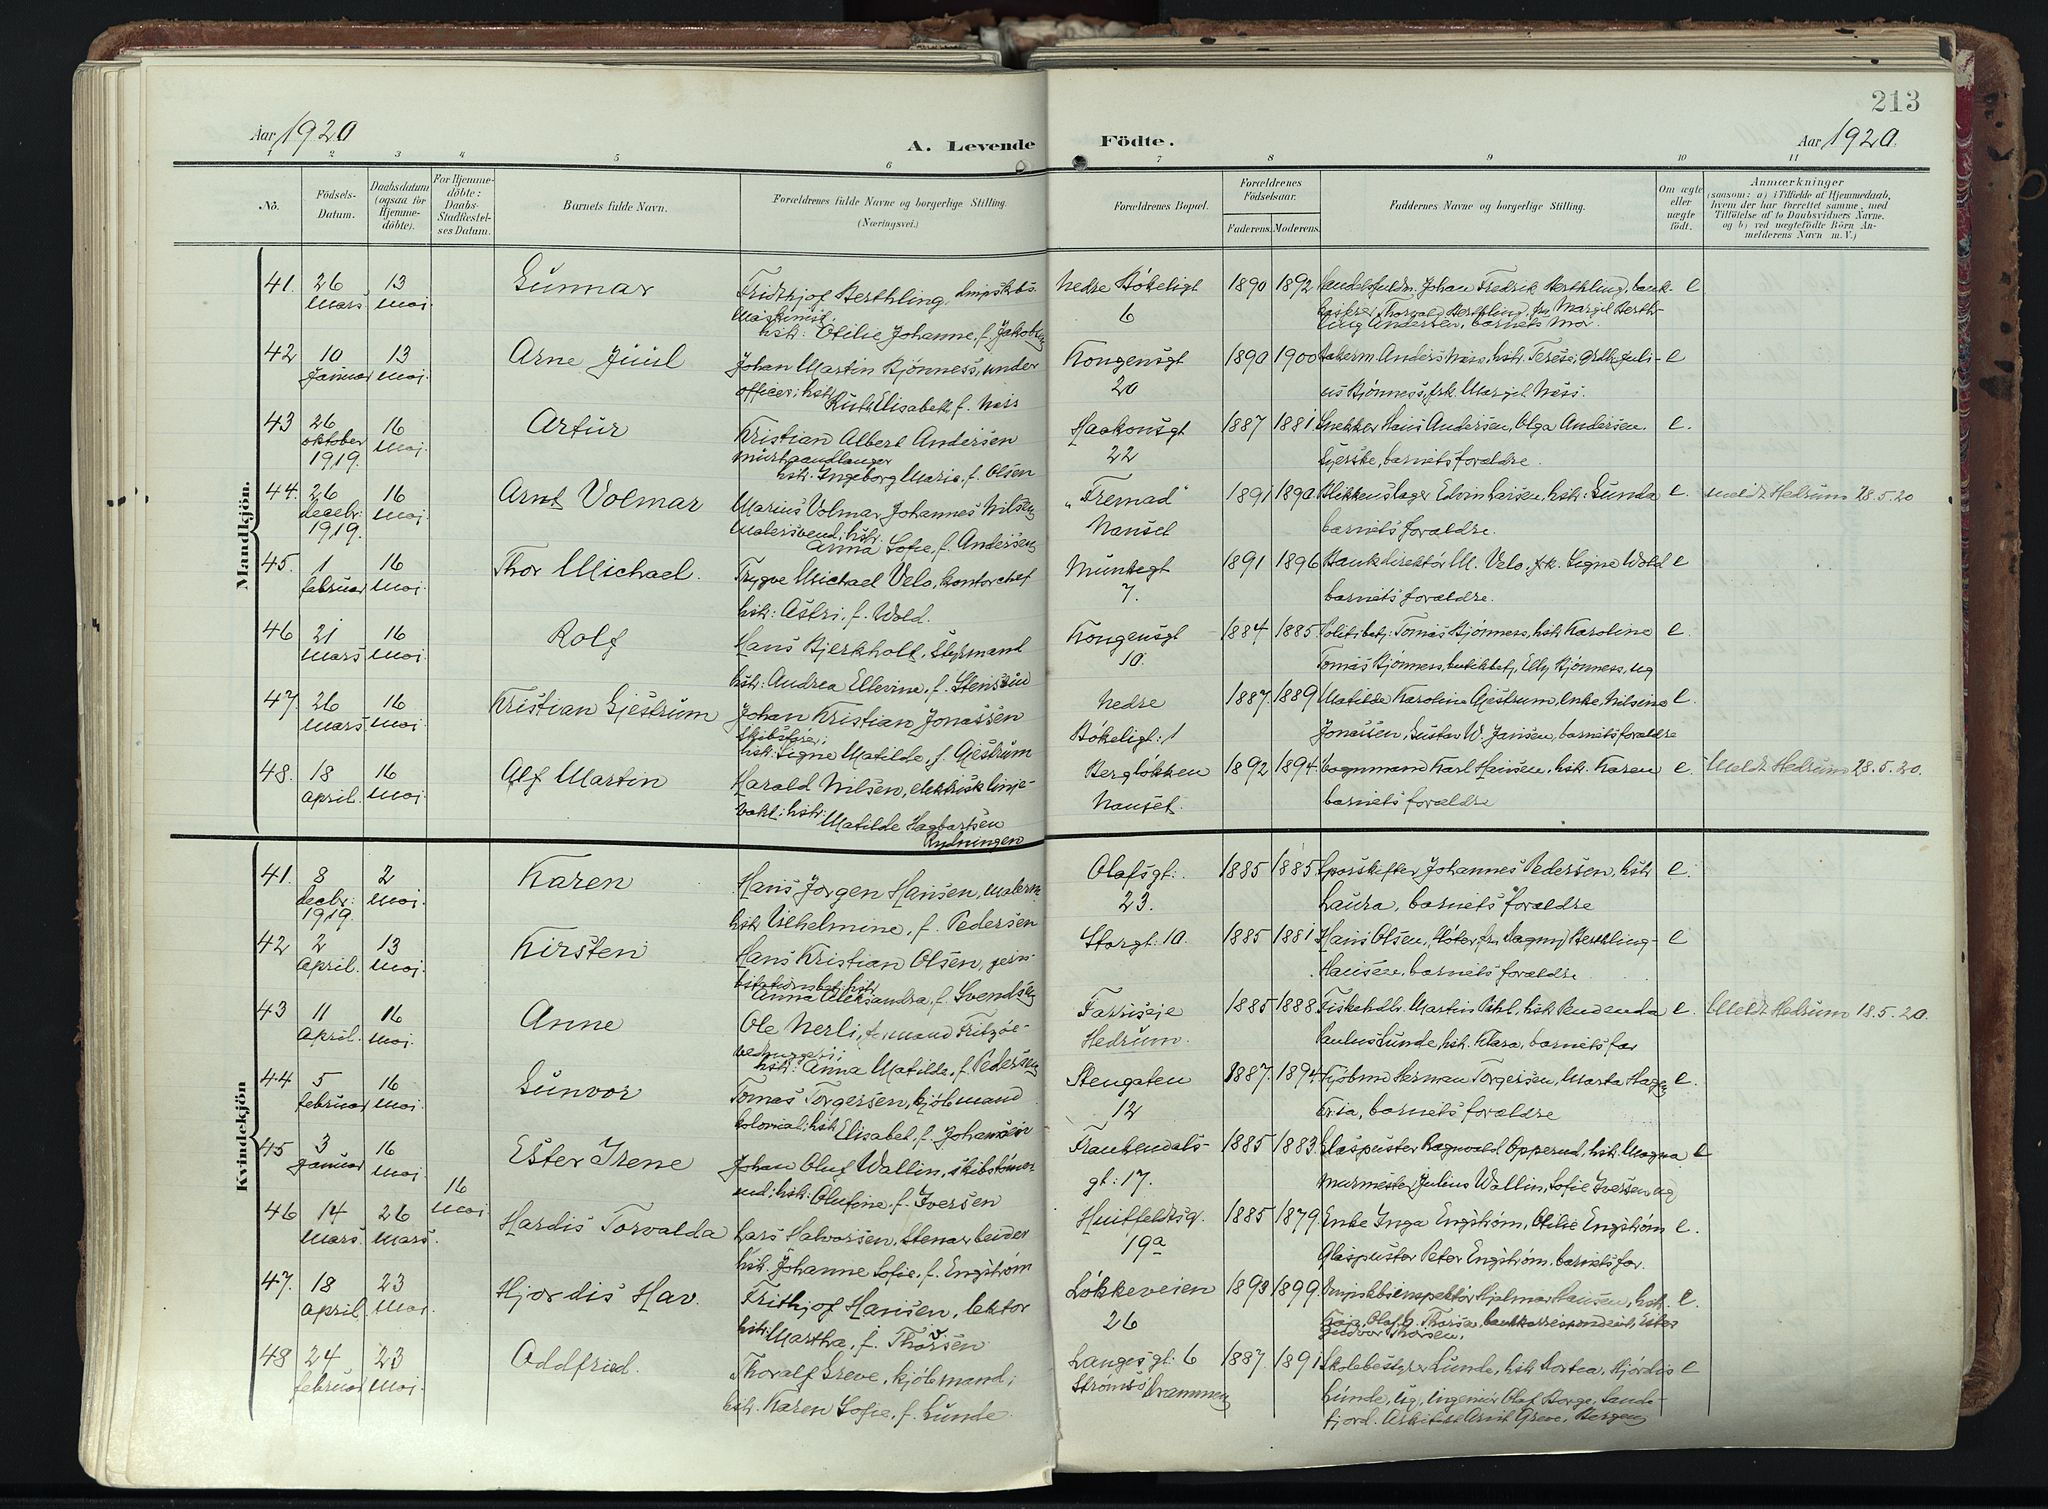 213
Aar 1920
A. Levende
Födte.
Aar 1920
1 2 3 4 5 6 7 8 9 10 11
No.
Födsels-Datum.
Daabsdatum (ogsaa for Hjemmedöbte).
For Hjemmedöbte: Daabs-Stadfæstelses Datum.
Barnets fulde Navn.
Forældrenes fulde Navne og borgerlige Stilling.
(Næringsvei.)
Forældrenes Bopæl.
Forældrenes Födselsaar.
Faderens. Moderens.
Faddernes Navne og borgerlige Stilling.
Om ægte eller uægte födt.
Anmærkninger
(saasom: a) i Tilfælde af Hjemmedaab, hvem der har forrettet samme, med Tilföielse af to Daabsvidners Navne. og b) ved uægtefödte Börn Anmelderens Navn m. V.)
Mandkjön.
41. 26 mars 13 mai. Gunnar
Fridthjof Berthling, dampskibs-
maskinist;
hstr: Otilie Johanne, f. Jakobsen
Nedre Bökeligt 6
1890 1892
Johan Fredrik Berthling, bank-
kasserer Thorvald Berthling, fru Margit Berth-
ling Andersen, barnets mor. e
42 10 januar 13 mai. Arne Juul
Johan Martin Bjönness, under
officer; hstr Ruth Elisabeth f. Näss
Kongensgt 20
1890 1900
Anders Näss, hstr. Terese, Juli-
us Bjönness, frk. Margit Näss. e
43 26 oktober 1919. 16 mai. Artur
Kristian Albert Andersen
murhaandlanger
hstr: Ingeborg Marie, f. Olsen
Haakonsgt 22
1887 1881
Snekker Hans Andersen, Olga Andersen.
barnets forældre. e.
44. 26 decbr: 1919. 16 mai. Arnt Volmar
Marius Volmar Johannes Nilsen
Malersvend; hstr. Anna Sofie, f. Andersen
"Fremad" Nanset
1891 1890
Blikkenslager Edvin Larsen, hstr: Gunda
barnets forældre. e. Meldt Hedrum 28.5.20
45. 1 februar 16 mai. Thor Michael.
Trygve Michael Velo, kontorchef
hstr: Astri, f. Wold.
Muntegt 7.
1891 1896
Bankdirektör M. Velo, frk. Signe Wold
barnets forældre. e
46 21 mars 16 mai. Rolf
Hans Bjerkholt, Styrmand
hstr: Andrea Ellevine, f. Stensrud
Kongensgt 10.
1884 1885
Politibetj: Tomas Bjönness, hstr Karoline
Tomas Bjönness, butikbetj, Elly Bjönness, ug e.
47. 26 mars 16 mai. Kristian Gjestrum
Johan Kristian Jonassen
skibsförer;
hstr: Signe Matilde, f. Gjestrum
Nedre Bökeligt: 1
1887. 1889
Matilde Karoline Gjestrum, enke, Nilsine
Jonassen, Gustav W. Jansen, barnets forældre e.
48. 18 april. 16 mai. Alf Martin
Harald Nilsen, elektrisk linje-
vakt; hstr: Matilde Hagbartsen
Rydningen
Berglökken Nanset.
1892 1894
Vognmand Karl Hansen, hstr. Karen
barnets forældre e. Meldt Hedrum 28.5.20.
Kvindekjön
41. 8 decbr: 1919. 2 mai. Karen
Hans Jörgen Hansen, malerm.
hstr Vilhelmine, f. Pedersen
Olafsgt: 23.
1885 1885
Sporskifter Johannes Pedersen, hstr
Laura, barnets forældre e.
42 2 april. 13 mai. Kirsten
Hans Kristian Olsen, jern-
hstr
Anna Aleksandra, f. Svendsen
Storgt: 10
1885 1881
Hans Olsen, fru Dagny Berthling-
Hansen, barnets forældre. e
43 11 april. 16 mai. Anne
Ole Nerli, formand Fritzöe
hstr: Anna Matilde, f. Pedersen
Farriseje Hedrum.
1885 1888
Fiskehdlr. Martin Dahl, hstr
Paulus Lunde, hstr. Klara, barnets far e Meldt Hedrum 18.5.20.
44 5 februar 16 mai. Gunvor
Tomas Torgersen, kjöbmand
kolonial; hstr Elisabet, f. Johansen
Stengaten 12
1887. 1894.
Kjöbmd Herman Torgersen, Marta Hagen
Kria, barnets forældre e.
45 3 januar 16 mai. Ester Irene
Johan Oluf Wallin, skibstömer
md; hstr: Olufine, f. Iversen
Traubendals-gt: 17.
1885 1883.
Glaspuster Ragnvald Opperud, hstr. Magna
Murmester Julius Wallin, Sofie Iversen ug e
46 14 mars. 26 mars. 16 mai. Hardis Torvalda
Lars Halvorsen, Stenarbeider
hstr. Johanne Sofie, f. Engström
Huitfeldtsg. 19a
1885 1879.
Enke Inga Engström, Otilie Engström
Glaspuster Peter Engström. barnets far. e.
47. 18 april. 23 mai. Hjördis Hav.
Frithjof Hansen, lektor
hstr: Martha, f. Thorsen
Lökkeveien 26
1893 1899
Hjalmar Hansen, hstr.
Kaja, Olaf G. Thorsen, bankkorrespondent,
Gudvor Thorsen. e.
48 24 februar 23 mai. Oddfried.
Thoralf Greve, kjöbmand;
hstr. Karen Sofie, f. Lunde.
Langes gt: 6 Strömsö Drammen
1887. 1891
Skolebestyrer Lunde, hstr Dortea, Hjördis
Lunde, ug, ingeniör Olaf Borge, Sande-
fjord. Arkitekt Arvid Greve, Bergen e